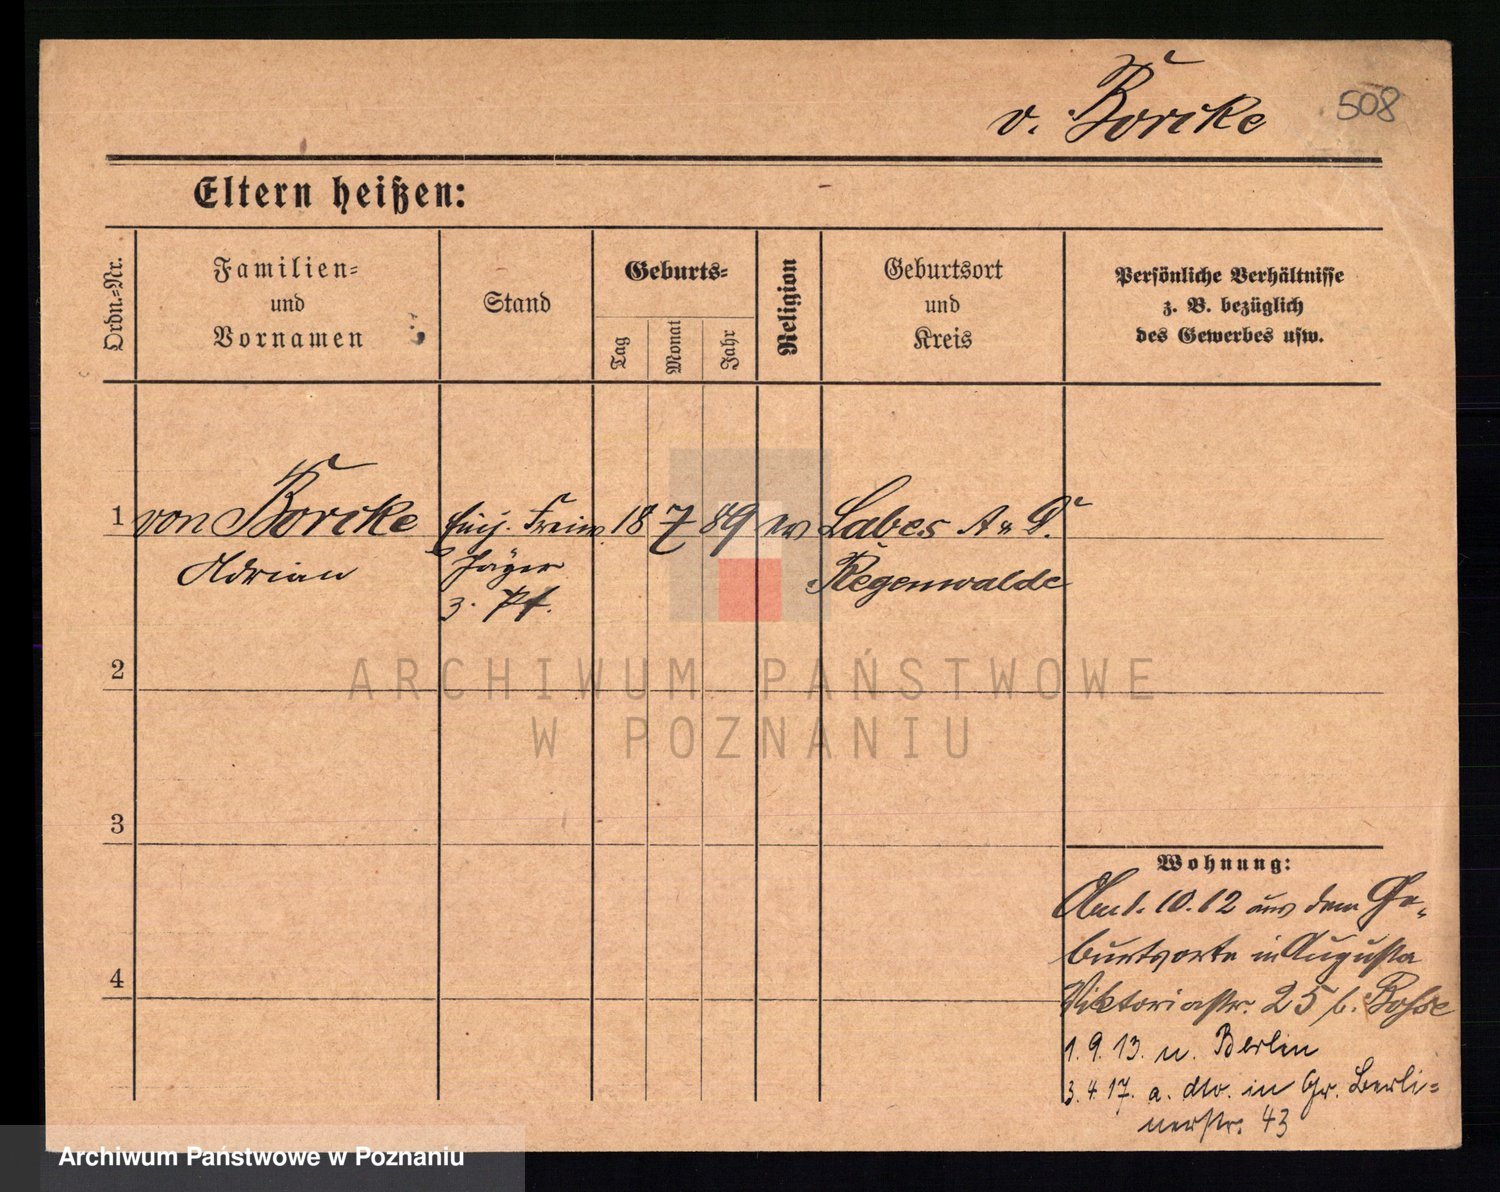 v. Borcke
508
Eltern heißen:
Ordn.-Nr.
Familien-
und
Vornamen
Stand
Geburts-
Tag
Monat
Jahr
Religion
Geburtsort
und
Kreis
Persönliche Verhältnisse
z. B. bezüglich
des Gewerbes usw.
1 von Borcke Einj. Freiw. 18 7 89 ev Labes
Adrian Jäger Regenwalde
z. Pf.
2
ARCHIWUM PAŃSTWOWE
W POZNANIU
3
Wohnung:
1.10.12 aus dem Ge-
burtsorte in Augusta
4
Viktoriastr. 25 b. Bosse
1.9.13. n. Berlin
3.4.17. a. dto. in Gr. Berli-
nerstr. 43
Archiwum Państwowe w Poznaniu